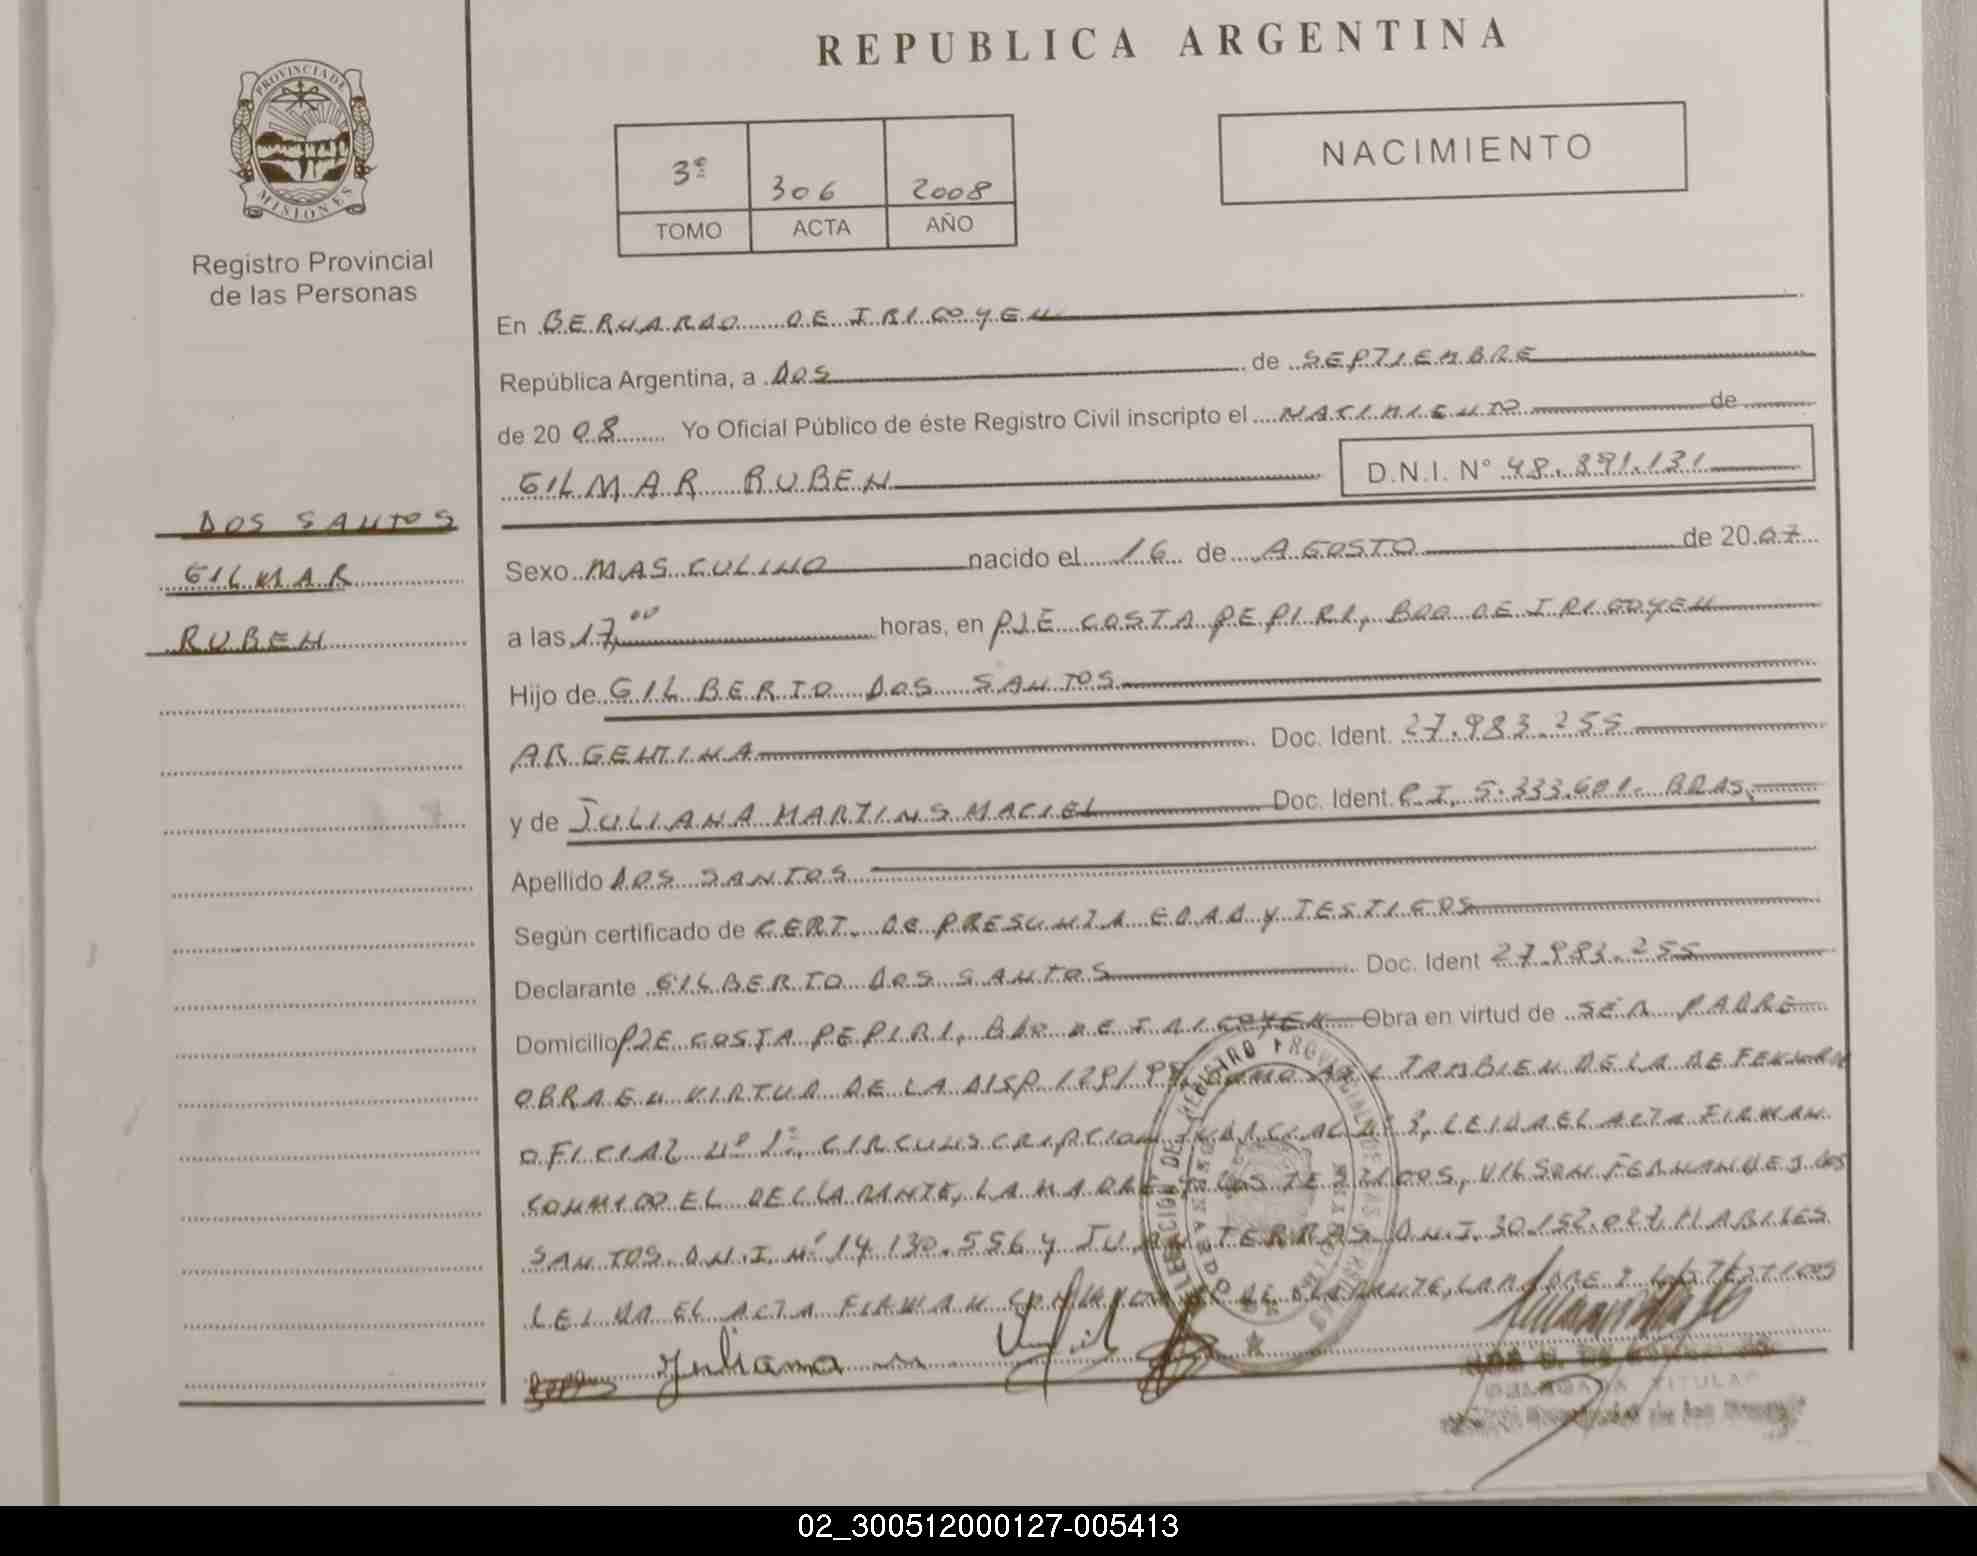 REPUBLICA ARGENTINA
PROVINCIA DE
MISIONES
Registro Provincial
de las Personas
3º 306 2008
TOMO ACTA AÑO
NACIMIENTO
En BERNARDO DE IRIGOYEN
República Argentina, a DOS de SEPTIEMBRE
de 20 08 Yo Oficial Público de éste Registro Civil inscripto el NACIMIENTO de
GILMAR RUBEN D.N.I. N° 48.391.131
DOS SANTOS
GILMAR
RUBEN
Sexo MASCULINO nacido el 16 de AGOSTO de 20 07
a las 17,00 horas, en PJE COSTA PEPIRI, BDO DE IRIGOYEN
Hijo de GILBERTO DOS SANTOS
ARGENTINA Doc. Ident. 27.983.255
y de JULIANA MARTINS MACIEL Doc. Ident. C.I. 5.333.601- BRAS.
Apellido DOS SANTOS
Según certificado de CERT. DE PRESUNTA EDAD y TESTIGOS
Declarante GILBERTO DOS SANTOS Doc. Ident 27.983.255
Domicilio PJE COSTA PEPIRI, BDO DE IRIGOYEN Obra en virtud de SER PADRE
OBRA EN VIRTUD DE LA DISP. 129/99, COMO ASI TAMBIEN DE LA DEFENSORIA
OFICIAL Nº 1º, CIRCUNSCRIPCION JUDICIAL Nº 3, LEIDA EL ACTA FIRMAN
CONMIGO EL DECLARANTE, LA MADRE Y LOS TESTIGOS, VILSON FERNANDES DOS
SANTOS D.N.I. Nº 14.130.556 y JUAN TERRAS D.N.I. 30.152.027 HABILES
LEIDA EL ACTA FIRMAN CONMIGO EL DECLARANTE, LA MADRE Y LOS TESTIGOS
Juliana
TITULAR
02_300512000127-005413